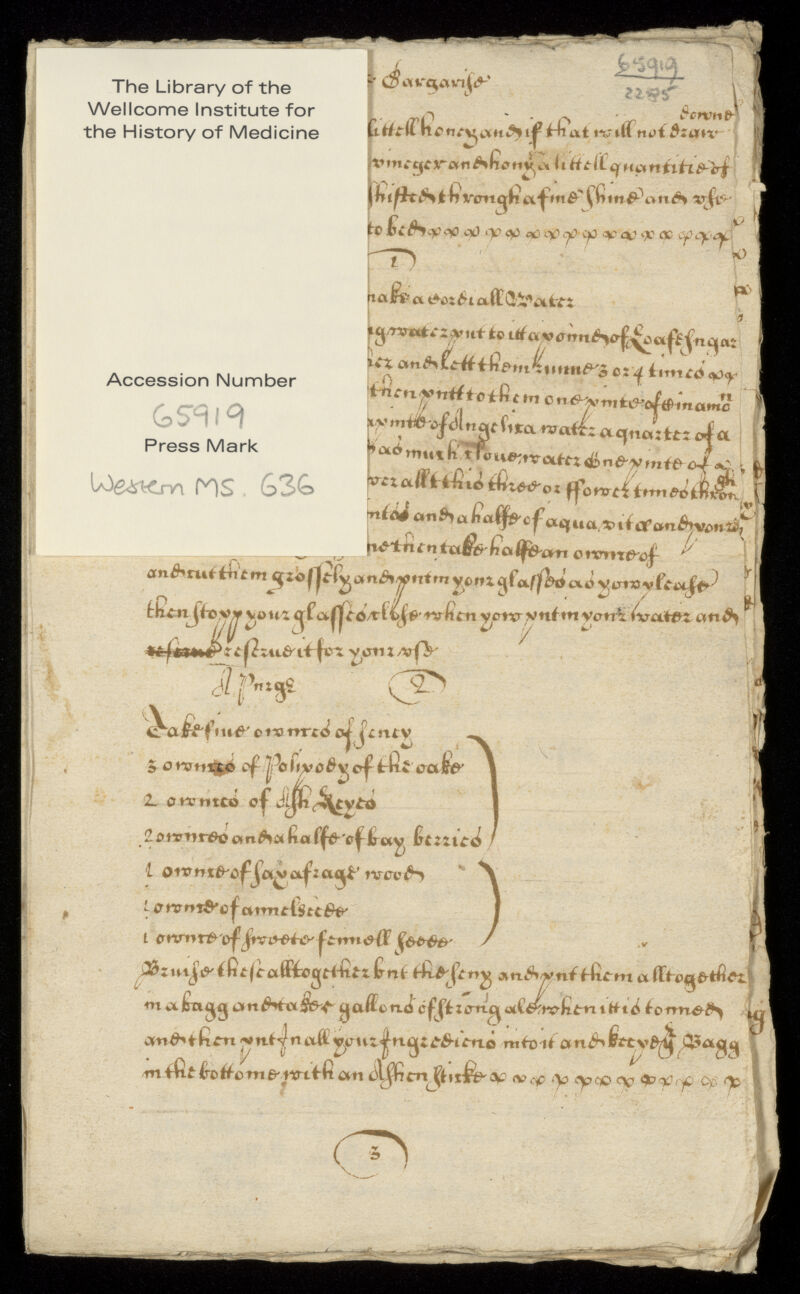 The Library of the
Wellcome Institute for
the History of Medicine
Accession Number
65919
Press Mark
Western MS. 636
65919
2285
Gargarise
downe
littell honey and if that will not draw
vineger and hony a littell quantitie of
shifted through a fine shine and vse
to bed
1
make a Cordiall Water
water putt to itt a pound of Loafe sugar
and Lett them runne 3 or 4 times
then putt to them one pinte of Sinamō
pinte of Angelica water a quarter of a
as much Cloue water One pinte of
all this three or ffower times throu gh
and a halfe of aqua vitæ and
then take halfe an ownce of
and cutt them grossely and put in your glasses as yow please
then stopp your glasses close when yow put in your water and
reserue reserue it for your vse
A Purge 2
Take fiue ownces of seney
3 ownces of Polipody of the oake
2 ownces of Ash Keyes
2 ownces and a halfe of bay berries
1 ownce of saxafrage wood
1 ownce of annelseede
1 ownce of sweete fennell seede
Bruise these alltogether but the seny and put them alltogether
in a bagg and take gallons of strong ale when itt is tonned
and then put In all your Ingrediens into it and keepe yͤ Bagg
in the bottome with an Ashen sticke
3